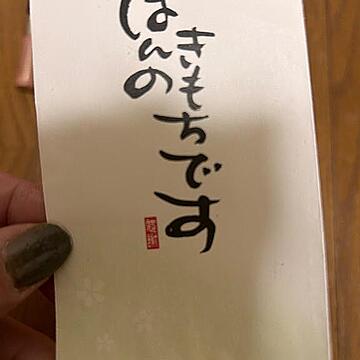 ほんの
きもちです
感謝